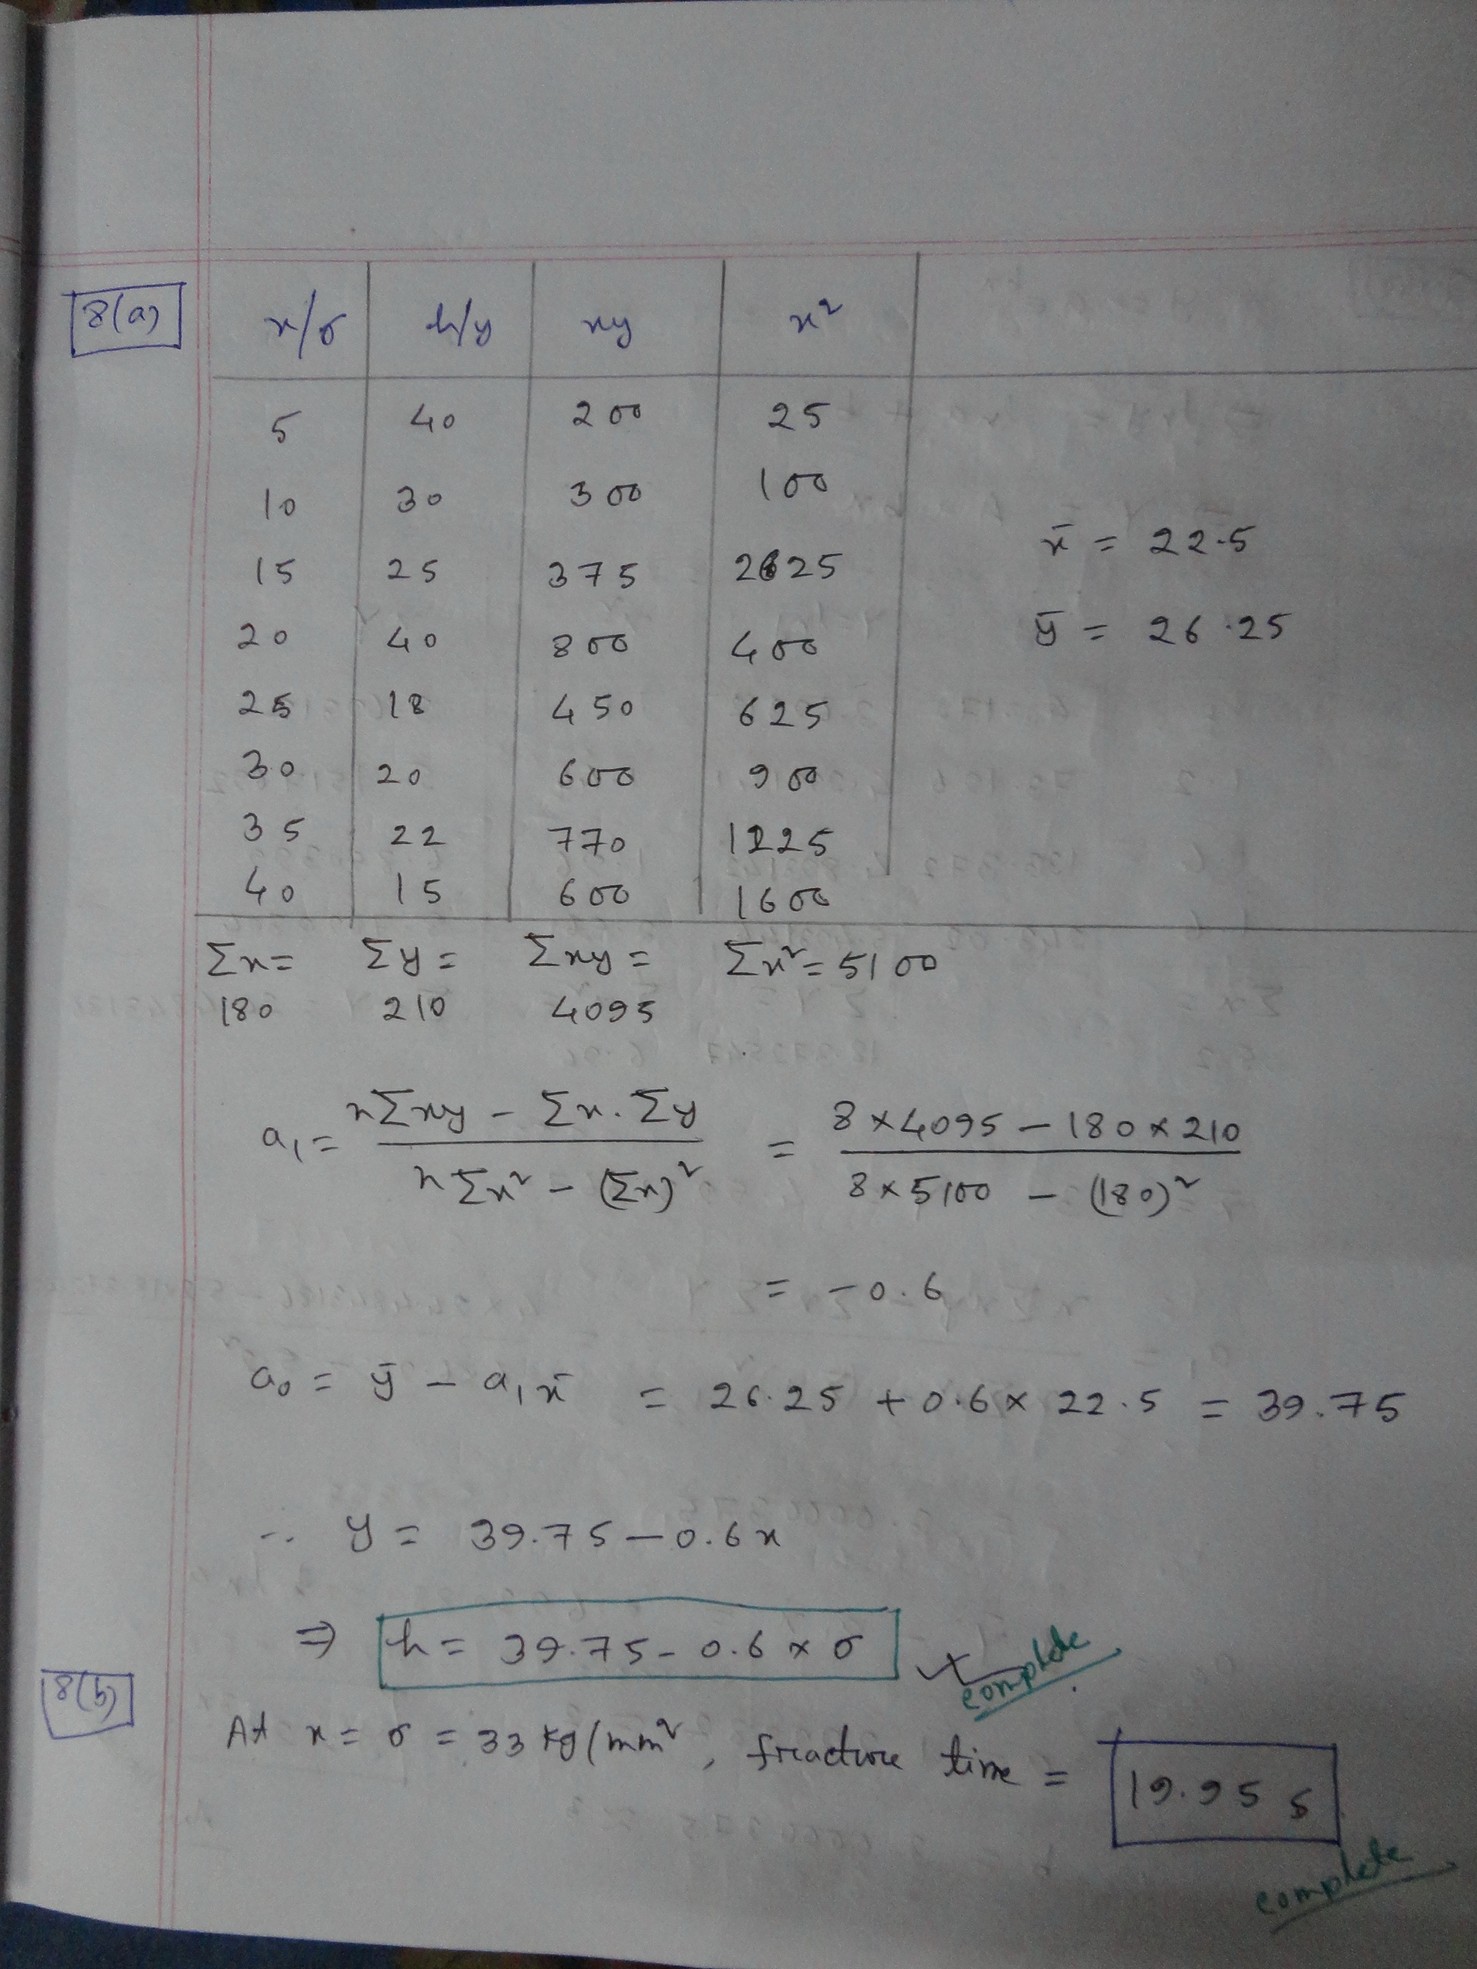 8(a) x/σ h/y xy x²
5 40 200 25
10 30 300 100
15 25 375 225
20 40 800 400
25 18 450 625
30 20 600 900
35 22 770 1225
40 15 600 1600
x̄ = 22.5
ȳ = 26.25
Σx = Σy = Σxy = Σx² = 5100
180 210 4095
a₁ = (nΣxy − Σx·Σy) / (nΣx² − (Σx)²) = (8×4095 − 180×210) / (8×5100 − (180)²)
= −0.6
a₀ = ȳ − a₁x̄ = 26.25 + 0.6 × 22.5 = 39.75
∴ y = 39.75 − 0.6x
⇒ h = 39.75 − 0.6 × σ
complete
8(b)
At x = σ = 33 kg/mm², fracture time = 19.95 s
complete